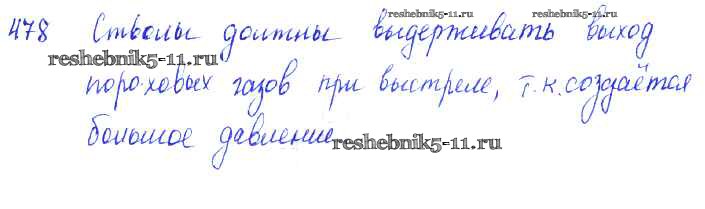 reshebnik5-11.ru reshebnik5-11.ru
478 Стволы должны выдерживать выход
reshebnik5-11.ru
пороховых газов при выстреле, т.к. создаётся
большое давление
reshebnik5-11.ru